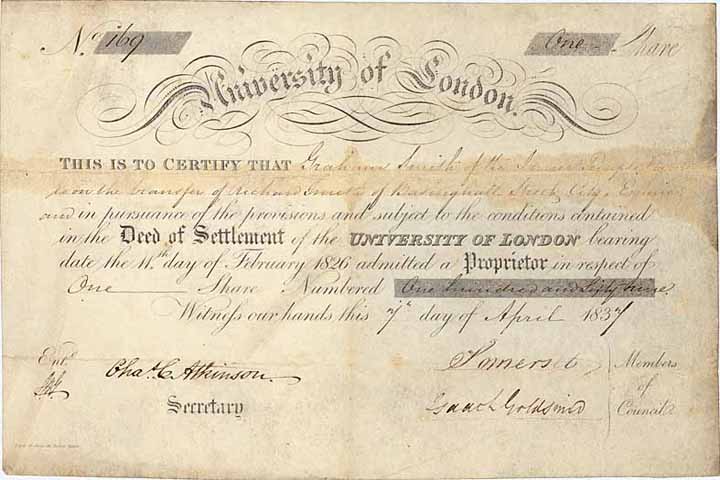 No. 169
One Share
University of London.
THIS IS TO CERTIFY THAT Grahame Smith of the Inner Temple
on the transfer of Richard Smith of Basinghall Street City, Esquire
and in pursuance of the provisions and subject to the conditions contained
in the Deed of Settlement of the UNIVERSITY OF LONDON bearing
date the 11th day of February 1826 admitted a Proprietor in respect of
One Share Numbered One hundred and sixty nine.
Witness our hands this 7th day of April 1837
Entd.
Chas. C. Atkinson.
Secretary
Somerset
Isaac L Goldsmid
Members
of
Council